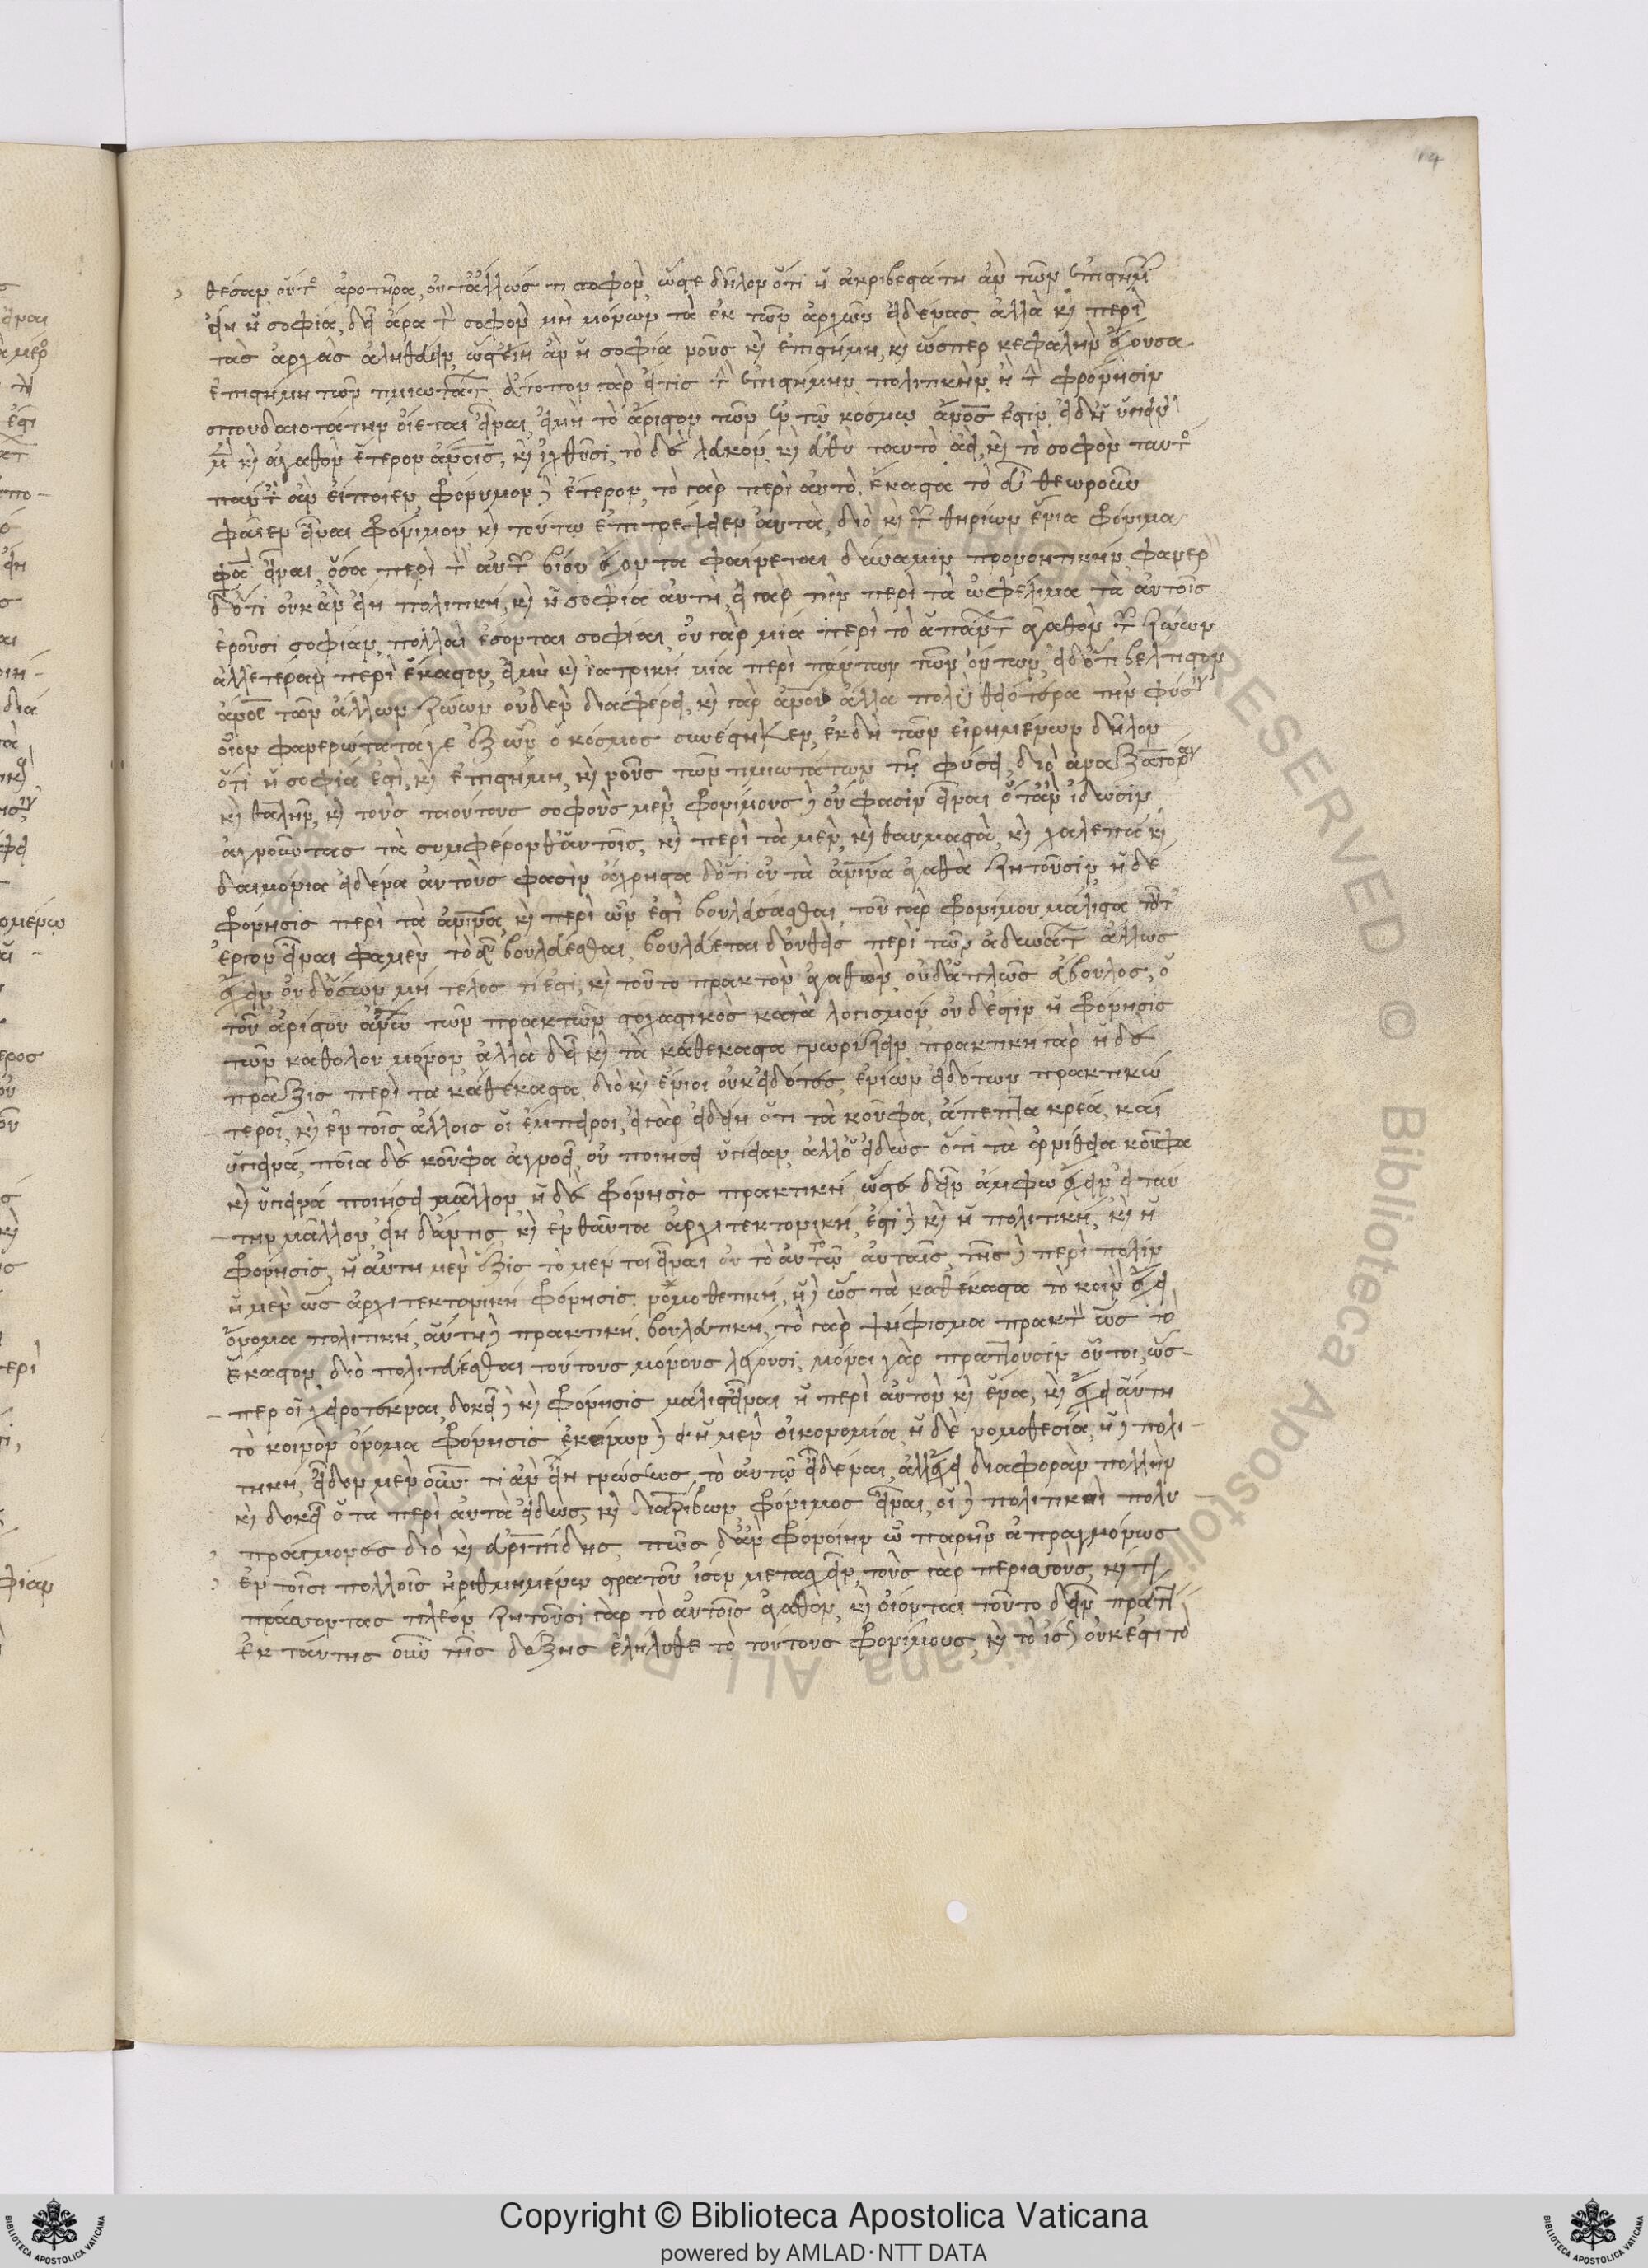 θέσαν οὔτ' ἀροτῆρα, οὔτ' ἄλλως τι σοφὸν, ὥστε δῆλον ὅτι ἡ ἀκριβεστάτη ἂν τῶν ἐπιστημῶν
εἴη ἡ σοφία, δεῖ ἄρα τὸν σοφὸν μὴ μόνον τὰ ἐκ τῶν ἀρχῶν εἰδέναι, ἀλλὰ καὶ περὶ
τὰς ἀρχὰς ἀληθεύειν, ὥστ' εἴη ἂν ἡ σοφία νοῦς καὶ ἐπιστήμη, καὶ ὥσπερ κεφαλὴν ἔχουσα
ἐπιστήμη τῶν τιμιωτάτων. ἄτοπον γὰρ εἴ τις τὴν ἐπιστήμην πολιτικὴν ἢ τὴν φρόνησιν
σπουδαιοτάτην οἴεται εἶναι, εἰ μὴ τὸ ἄριστον τῶν ἐν τῷ κόσμῳ ἄνθρωπός ἐστιν. εἰ δὴ ὑγιεινὸν
μὲν καὶ ἀγαθὸν ἕτερον ἀνθρώποις, καὶ ἰχθύσι, τὸ δὲ λευκὸν καὶ εὐθὺ ταυτὸ ἀεὶ, καὶ τὸ σοφὸν ταυτὸ
πάντες ἂν εἴποιεν, φρόνιμον δὲ ἕτερον, τὸ γὰρ περὶ αὑτὸ ἕκαστα τὸ εὖ θεωροῦν
φαῖεν εἶναι φρόνιμον καὶ τούτῳ ἐπιτρέψειεν αὐτὰ, διὸ καὶ τῶν θηρίων ἔνια φρόνιμα
φασὶν εἶναι, ὅσα περὶ τὸν αὑτῶν βίον ἔχοντα φαίνεται δύναμιν προνοητικὴν, φανερὸν
δ' ὅτι οὐκ ἂν εἴη πολιτικὴ, καὶ ἡ σοφία αὐτὴ, εἰ γὰρ τὴν περὶ τὰ ὠφέλιμα τὰ αὑτοῖς
ἐροῦσι σοφίαν, πολλαὶ ἔσονται σοφίαι, οὐ γὰρ μία περὶ τὸ ἁπάντων ἀγαθὸν τῶν ζώων
ἀλλ' ἑτέρα περὶ ἕκαστον, εἰ μὴ καὶ ἰατρικὴ μία περὶ πάντων τῶν ὄντων, εἰ δ' ὅτι βέλτιστον
ἄνθρωπος τῶν ἄλλων ζώων οὐδὲν διαφέρει, καὶ γὰρ ἀνθρώπου ἄλλα πολὺ θειότερα τὴν φύσιν
οἷον φανερώτατά γε ἐξ ὧν ὁ κόσμος συνέστηκεν, ἐκ δὴ τῶν εἰρημένων δῆλον
ὅτι ἡ σοφία ἐστὶ, καὶ ἐπιστήμη, καὶ νοῦς τῶν τιμιωτάτων τῇ φύσει, διὸ ἀναξαγόραν
καὶ θαλῆν, καὶ τοὺς τοιούτους σοφοὺς μὲν, φρονίμους δὲ οὔ φασιν εἶναι ὅταν ἴδωσιν
ἀγνοοῦντας τὰ συμφέρονθ' ἑαυτοῖς, καὶ περιττὰ μὲν, καὶ θαυμαστὰ, καὶ χαλεπὰ καὶ
δαιμόνια εἰδέναι αὐτούς φασιν, ἄχρηστα δ' ὅτι οὐ τὰ ἀνθρώπινα ἀγαθὰ ζητοῦσιν, ἡ δὲ
φρόνησις περὶ τὰ ἀνθρώπινα, καὶ περὶ ὧν ἐστὶ βουλεύσασθαι, τοῦ γὰρ φρονίμου μάλιστα τοῦτ'
ἔργον εἶναι φαμὲν τὸ εὖ βουλεύεσθαι, βουλεύεται δ' οὐθεὶς περὶ τῶν ἀδυνάτων ἄλλως
ἔχειν οὐδ' ὅσων μὴ τέλος τί ἐστι, καὶ τοῦτο πρακτὸν ἀγαθὸν. ὁ δ' ἁπλῶς εὔβουλος, ὁ
τοῦ ἀρίστου ἀνθρώπῳ τῶν πρακτῶν στοχαστικὸς κατὰ λογισμὸν οὐδ' ἐστὶν ἡ φρόνησις
τῶν καθόλου μόνον, ἀλλὰ δεῖ καὶ τὰ καθέκαστα γνωρίζειν, πρακτικὴ γὰρ ἡ δὲ
πρᾶξις περὶ τὰ καθέκαστα, διὸ καὶ ἔνιοι οὐκ εἰδότες, ἐνίων εἰδότων πρακτικώ
τεροι, καὶ ἐν τοῖς ἄλλοις οἱ ἔμπειροι, εἰ γὰρ εἰδείη ὅτι τὰ κοῦφα, εὔπεπτα κρέα, καὶ
ὑγιεινὰ, ποῖα δὲ κοῦφα ἀγνοεῖ, οὐ ποιήσει ὑγίειαν, ἀλλ' ὁ εἰδὼς ὅτι τὰ ὀρνίθεια κοῦφα
καὶ ὑγιεινὰ ποιήσει μᾶλλον ἡ δὲ φρόνησις πρακτικὴ, ὥστε δεῖν ἄμφω ἔχειν, ἢ ταύ
την μᾶλλον, εἴη δ' ἄν τις, καὶ ἐνταῦθα ἀρχιτεκτονικὴ, ἔστι δὲ καὶ ἡ πολιτικὴ, καὶ ἡ
φρόνησις, ἡ αὐτὴ μὲν ἕξις τὸ μέντοι εἶναι οὐ τὸ αὐτὸν αὐταῖς, τῆς δὲ περὶ πόλιν
ἡ μὲν ὡς ἀρχιτεκτονικὴ φρόνησις νομοθετικὴ, ἡ δὲ ὡς τὰ καθέκαστα τὸ κοινὸν ἔχει
ὄνομα πολιτικὴ, αὕτη δὲ πρακτικὴ, βουλευτικὴ, τὸ γὰρ ψήφισμα πρακτὸν ὡς τὸ
ἕκαστον, διὸ πολιτεύεσθαι τούτους μόνους λέγουσι, μόνοι γὰρ πράττουσιν οὗτοι, ὥσ
περ οἱ χειροτέχναι, δοκεῖ δὲ καὶ φρόνησις μάλιστ' εἶναι ἡ περὶ αὑτὸν καὶ ἕνα, καὶ ἔχει αὕτη
τὸ κοινὸν ὄνομα φρόνησις ἐκείνων δὲ ἡ μὲν οἰκονομία, ἡ δὲ νομοθεσία, ἡ δὲ πολι
τικὴ, εἶδος μὲν οὖν τι ἂν εἴη γνώσεως, τὸ αὑτῷ εἰδέναι, ἀλλ' ἔχει διαφορὰν πολλὴν
καὶ δοκεῖ ὁ τὰ περὶ αὑτὰ εἰδὼς, καὶ διατρίβων, φρόνιμος εἶναι, οἱ δὲ πολιτικοὶ πολυ
πράγμονες διὸ καὶ εὐριπίδης, πῶς δ' ἂν φρονοίην ᾧ παρῆν ἀπραγμόνως
ἐν τοῖσι πολλοῖς ἠριθμημένῳ στρατοῦ ἴσον μετασχεῖν, τοὺς γὰρ περισσοὺς, καί τι
πράσσοντας πλέον, ζητοῦσι γὰρ τὸ αὑτοῖς ἀγαθὸν, καὶ οἴονται τοῦτο δεῖν πράττειν
ἐκ ταύτης οὖν τῆς δόξης ἐλήλυθε τὸ τούτους φρονίμους, καὶ τὸ ἴσως οὐκ ἔστι τὸ
Copyright © Biblioteca Apostolica Vaticana
powered by AMLAD·NTT DATA